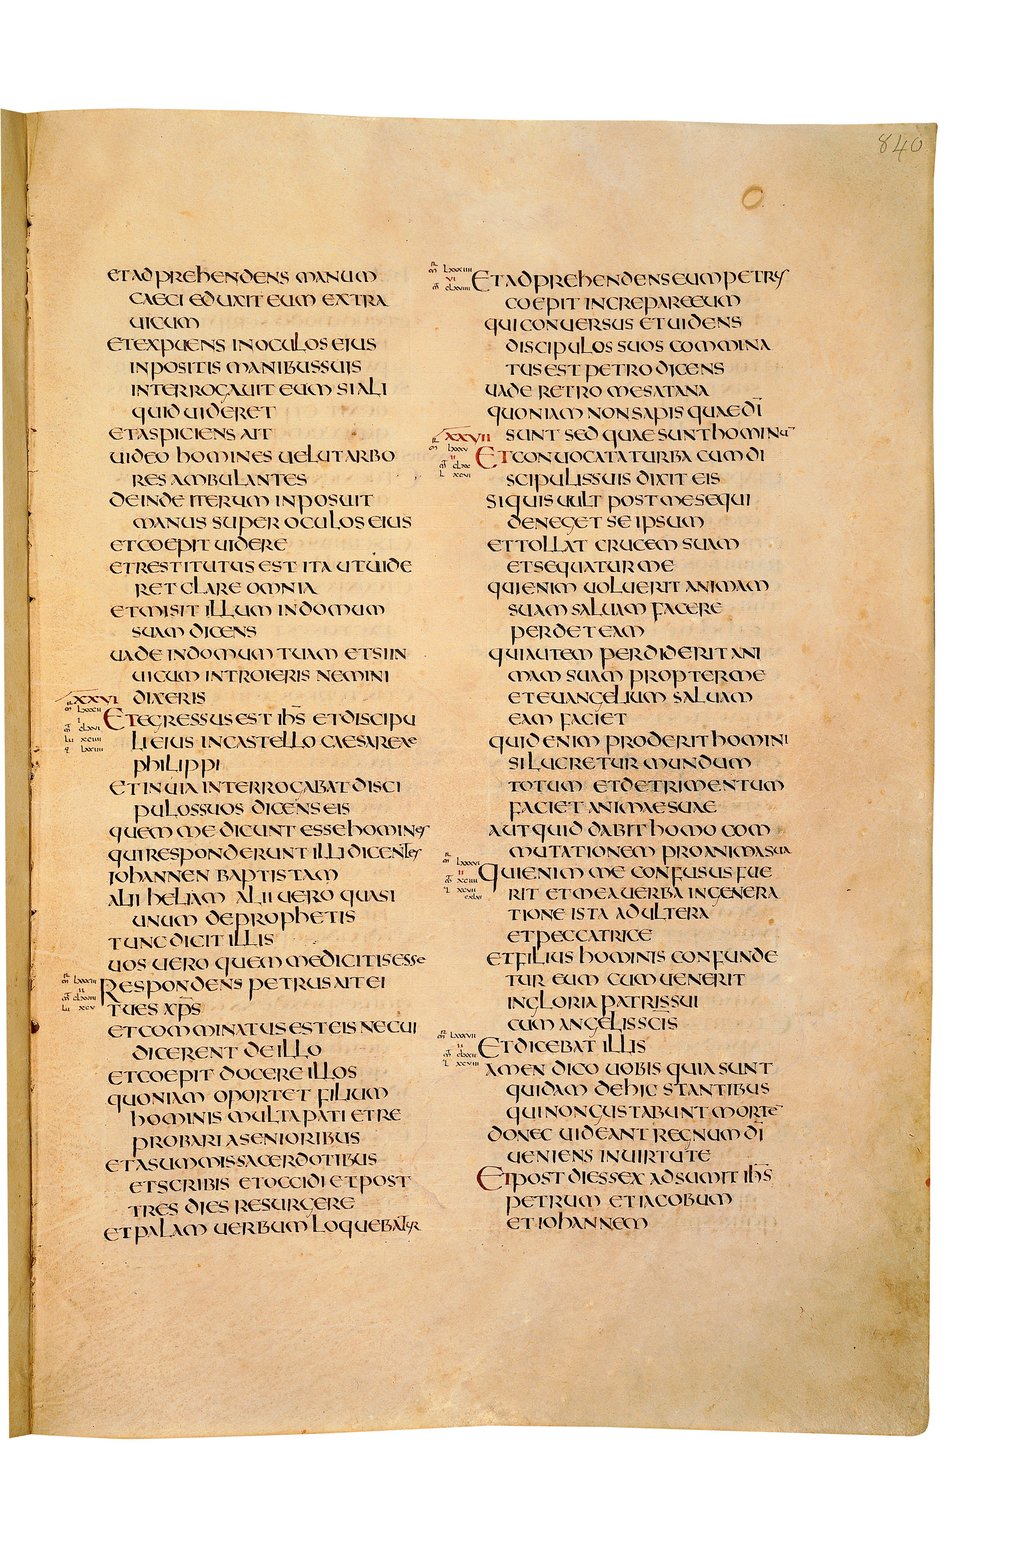 840
ET ADPREHENDENS MANUM
CAECI EDUXIT EUM EXTRA
UICUM
ET EXPUENS IN OCULOS EIUS
INPOSITIS MANIBUS SUIS
INTERROGAUIT EUM SI ALI
QUID UIDERET
ET ASPICIENS AIT
UIDEO HOMINES UELUT ARBO
RES AMBULANTES
DEINDE ITERUM INPOSUIT
MANUS SUPER OCULOS EIUS
ET COEPIT UIDERE
ET RESTITUTUS EST ITA UT UIDE
RET CLARE OMNIA
ET MISIT ILLUM IN DOMUM
SUAM DICENS
UADE IN DOMUM TUAM ET SI IN
UICUM INTROIERIS NEMINI
XXVI DIXERIS
ET EGRESSUS EST IHS ET DISCIPU
LI EIUS IN CASTELLO CAESAREAE
PHILIPPI
ET IN UIA INTERROGABAT DISCI
PULOS SUOS DICENS EIS
QUEM ME DICUNT ESSE HOMINES
QUI RESPONDERUNT ILLI DICENTES
IOHANNEN BAPTISTAM
ALII HELIAM ALII UERO QUASI
UNUM DE PROPHETIS
TUNC DICIT ILLIS
UOS UERO QUEM ME DICITIS ESSE
RESPONDENS PETRUS AIT EI
TU ES XPS
ET COMMINATUS EST EIS NE CUI
DICERENT DE ILLO
ET COEPIT DOCERE ILLOS
QUONIAM OPORTET FILIUM
HOMINIS MULTA PATI ET RE
PROBARI A SENIORIBUS
ET A SUMMIS SACERDOTIBUS
ET SCRIBIS ET OCCIDI ET POST
TRES DIES RESURGERE
ET PALAM UERBUM LOQUEBATUR
ET ADPREHENDENS EUM PETRUS
COEPIT INCREPARE EUM
QUI CONUERSUS ET UIDENS
DISCIPULOS SUOS COMMINA
TUS EST PETRO DICENS
UADE RETRO ME SATANA
QUONIAM NON SAPIS QUAE DI
XXVII SUNT SED QUAE SUNT HOMINUM
ET CONUOCATA TURBA CUM DI
SCIPULIS SUIS DIXIT EIS
SI QUIS UULT POST ME SEQUI
DENEGET SE IPSUM
ET TOLLAT CRUCEM SUAM
ET SEQUATUR ME
QUI ENIM UOLUERIT ANIMAM
SUAM SALUAM FACERE
PERDET EAM
QUI AUTEM PERDIDERIT ANI
MAM SUAM PROPTER ME
ET EUANGELIUM SALUAM
EAM FACIET
QUID ENIM PRODERIT HOMINI
SI LUCRETUR MUNDUM
TOTUM ET DETRIMENTUM
FACIET ANIMAE SUAE
AUT QUID DABIT HOMO COM
MUTATIONEM PRO ANIMA SUA
QUI ENIM ME CONFUSUS FUE
RIT ET MEA UERBA IN GENERA
TIONE ISTA ADULTERA
ET PECCATRICE
ET FILIUS HOMINIS CONFUNDE
TUR EUM CUM UENERIT
IN GLORIA PATRIS SUI
CUM ANGELIS SCIS
ET DICEBAT ILLIS
AMEN DICO UOBIS QUIA SUNT
QUIDAM DE HIC STANTIBUS
QUI NON GUSTABUNT MORTE
DONEC UIDEANT REGNUM DI
UENIENS IN UIRTUTE
ET POST DIES SEX ADSUMIT IHS
PETRUM ET IACOBUM
ET IOHANNEM